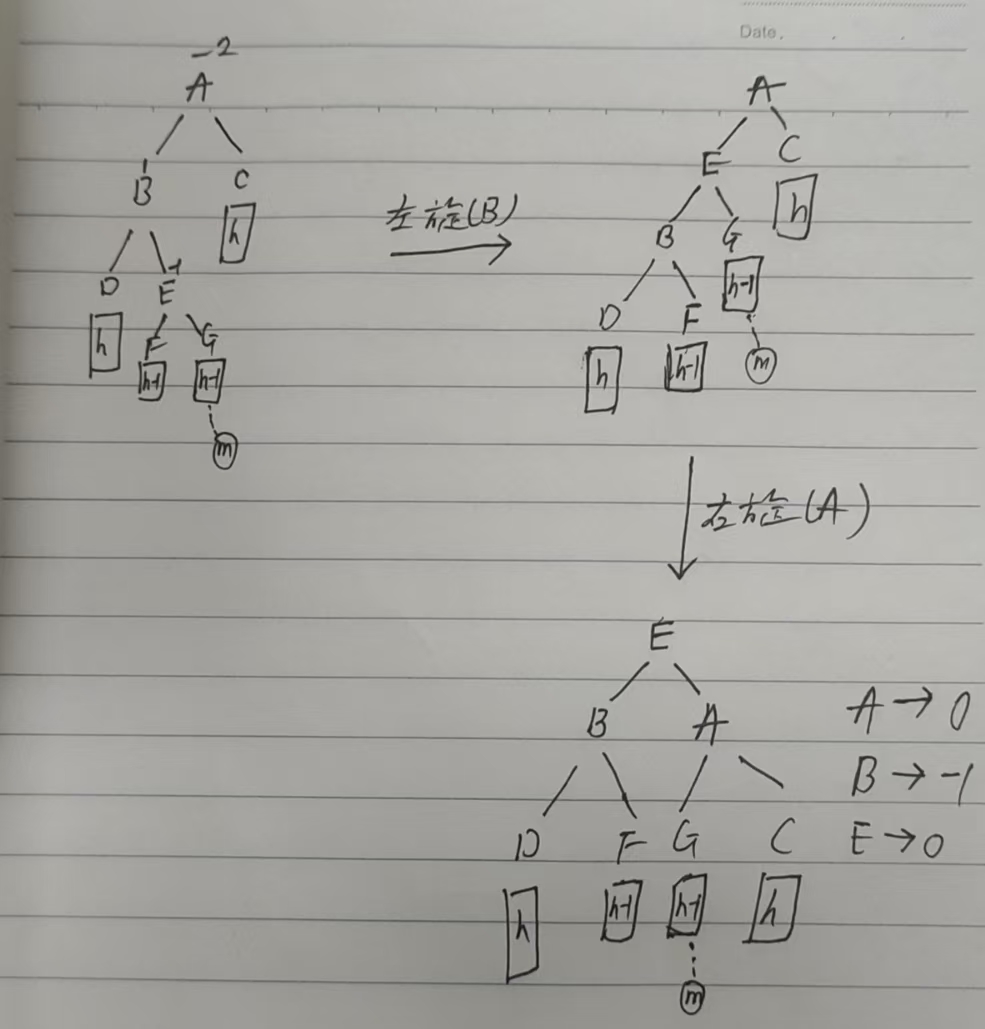 Date.
-2
A
B C
h
D E -1
h F G
h-1 h-1
m
左旋(B)
A
E C
h
B G
h-1
D F
h h-1 m
右旋(A)
E
B A
D F G C
h h-1 h-1 h
m
A → 0
B → -1
E → 0